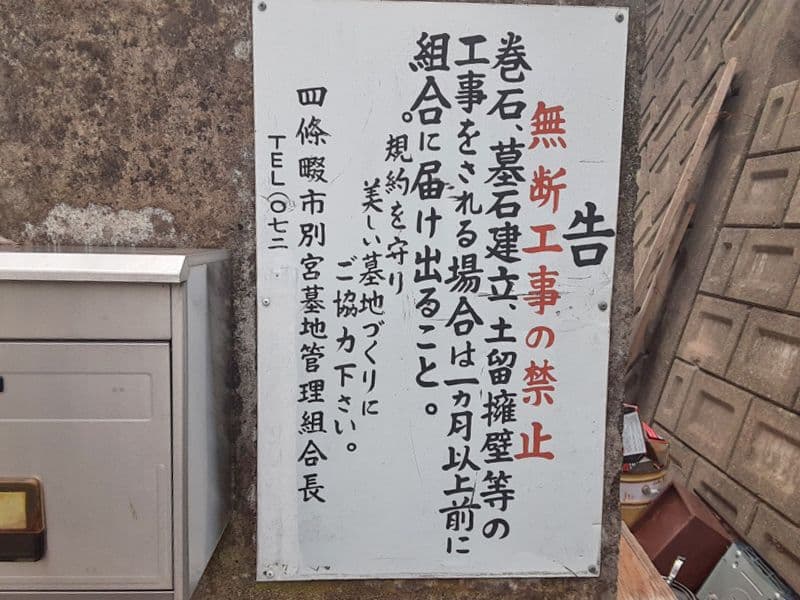 告
無断工事の禁止
巻石、墓石建立、土留擁壁等の
工事をされる場合は一ヵ月以上前に
組合に届け出ること。
。規約を守り
美しい墓地づくりに
ご協力下さい。
四條畷市別宮墓地管理組合長
TEL〇七二